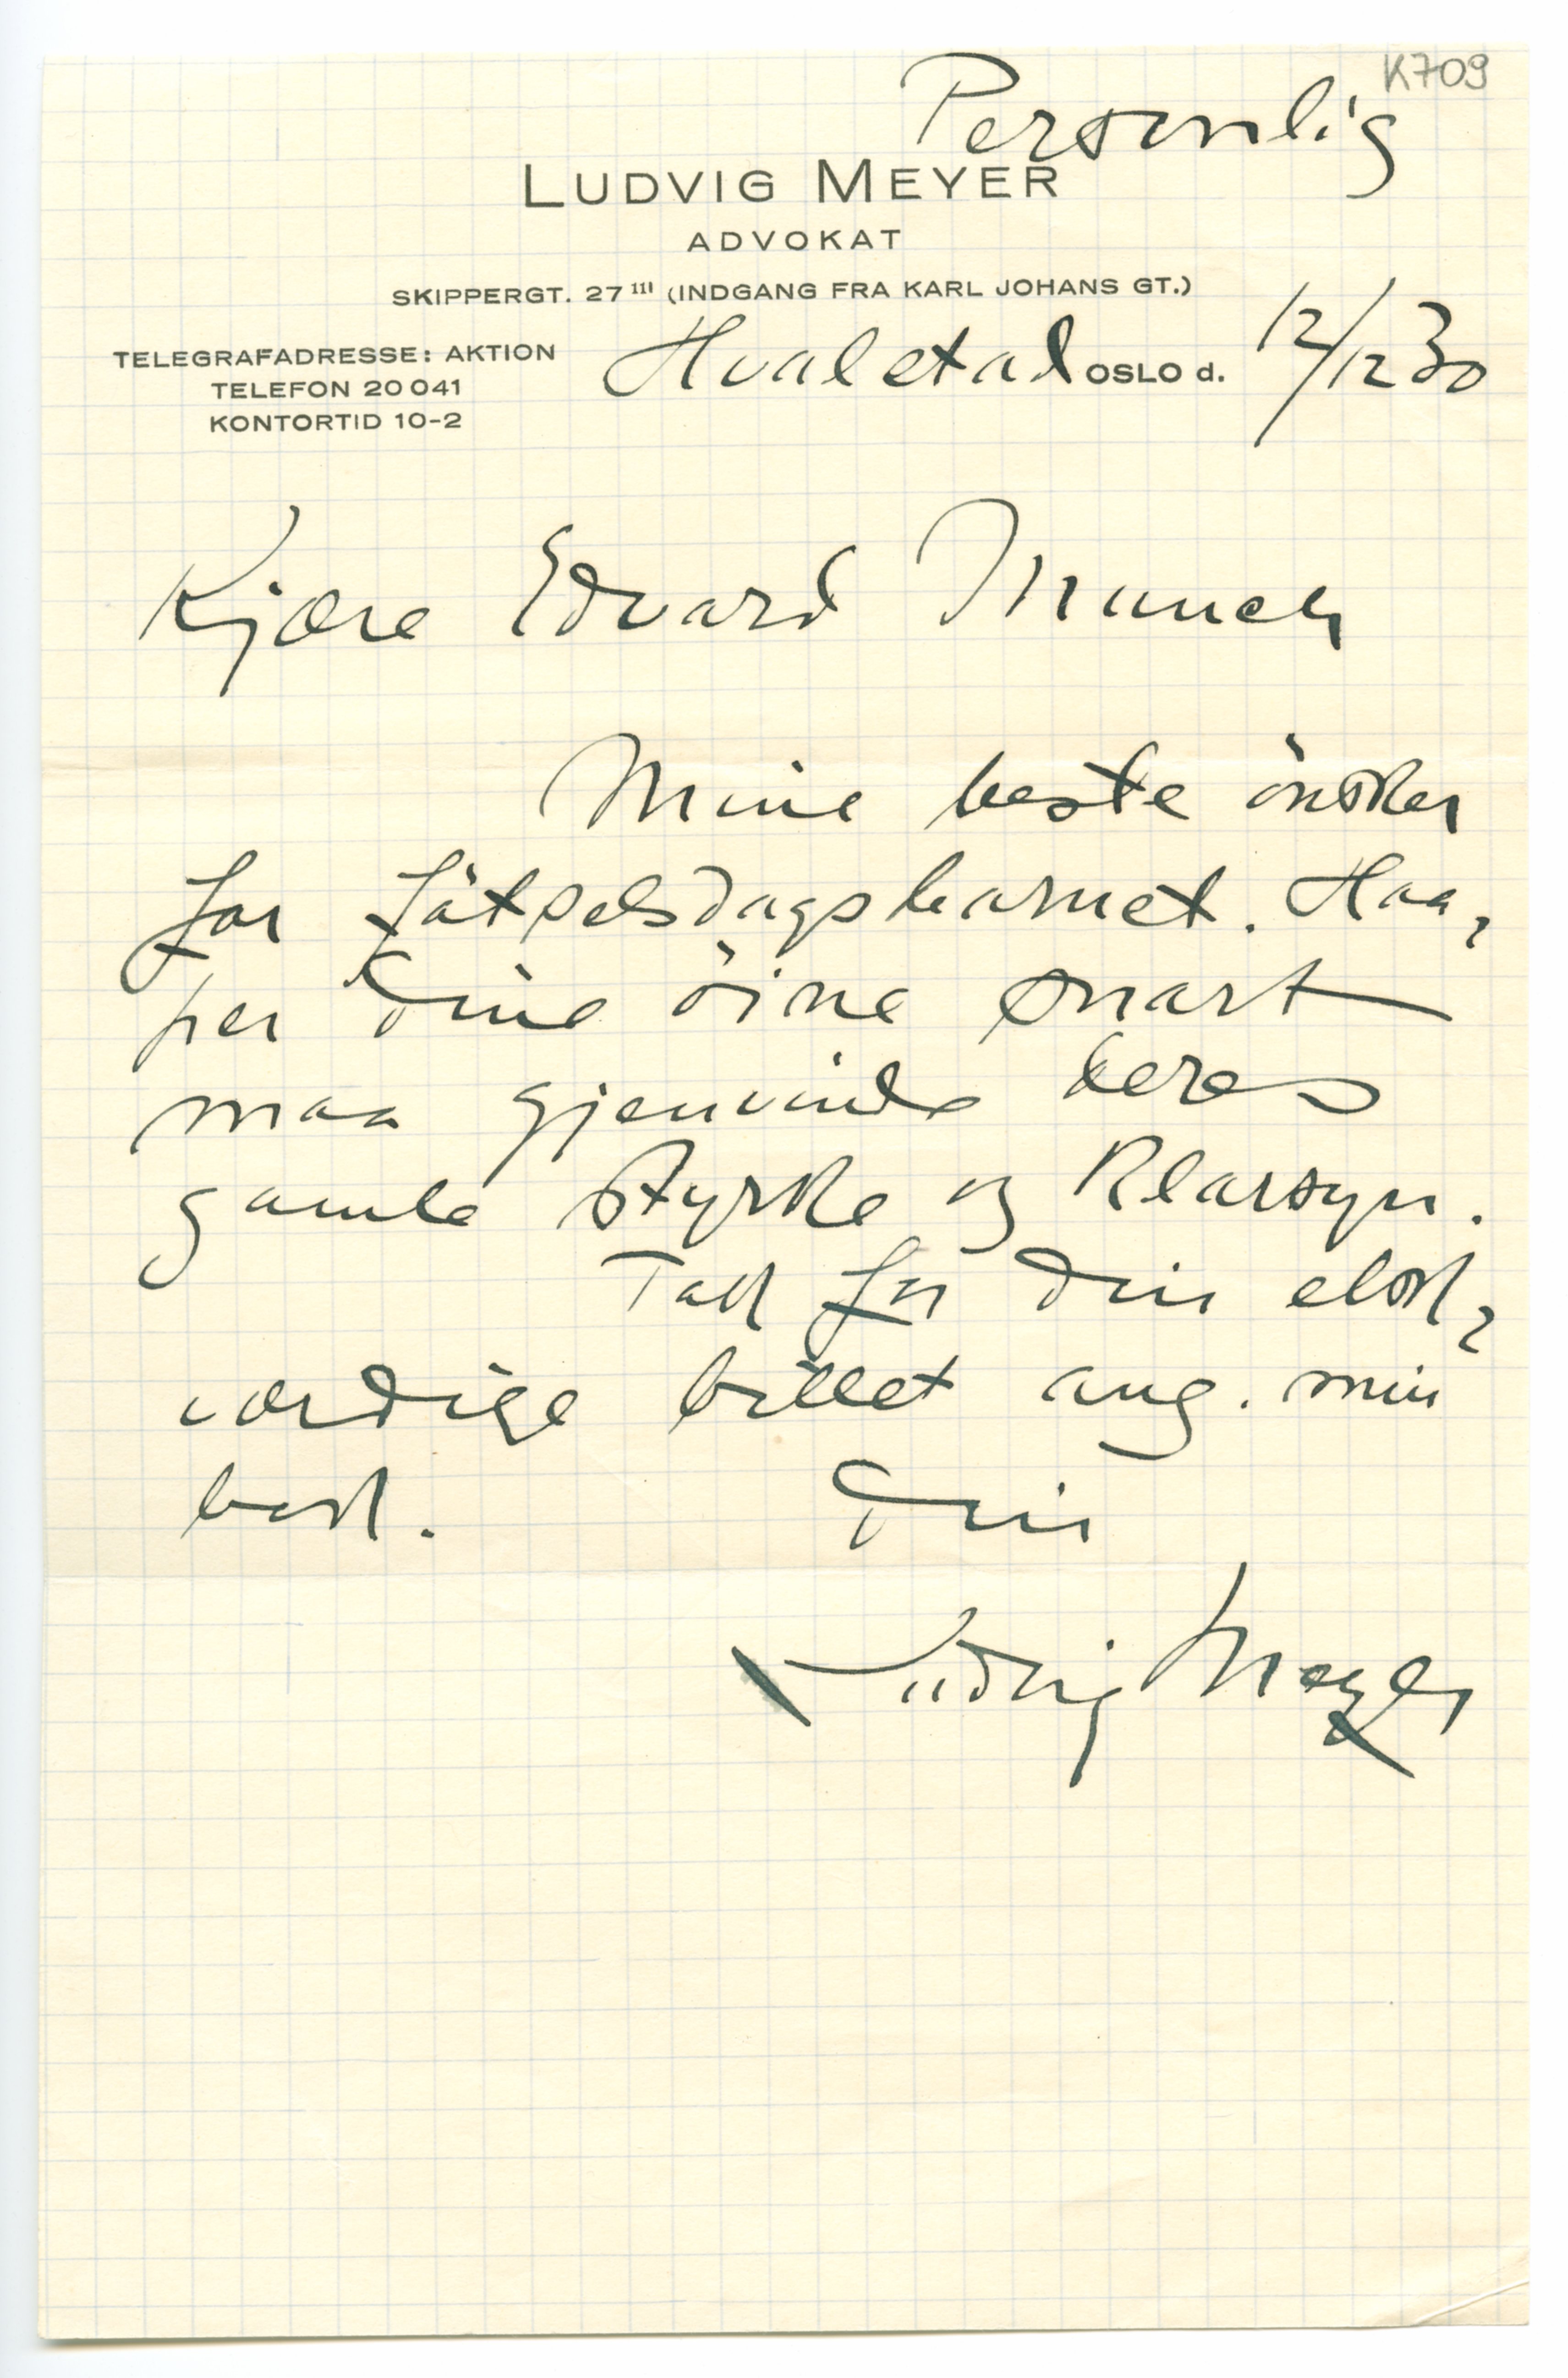 K709
Personlig
LUDVIG MEYER
ADVOKAT
SKIPPERGT. 27 III (INDGANG FRA KARL JOHANS GT.)
TELEGRAFADRESSE: AKTION
TELEFON 20041
KONTORTID 10-2
Hvaletal OSLO d. 12/12 30
Kjære Edvard Munch
Mine beste önsker
for fötselsdagsbarnet. Haa,
per Dine öine snart
maa gjenvinde deres
gamle styrke og klarsyn.
Takk for Din elsk,
værdige billet ang. min
bok.
Din
Ludvig Meyer